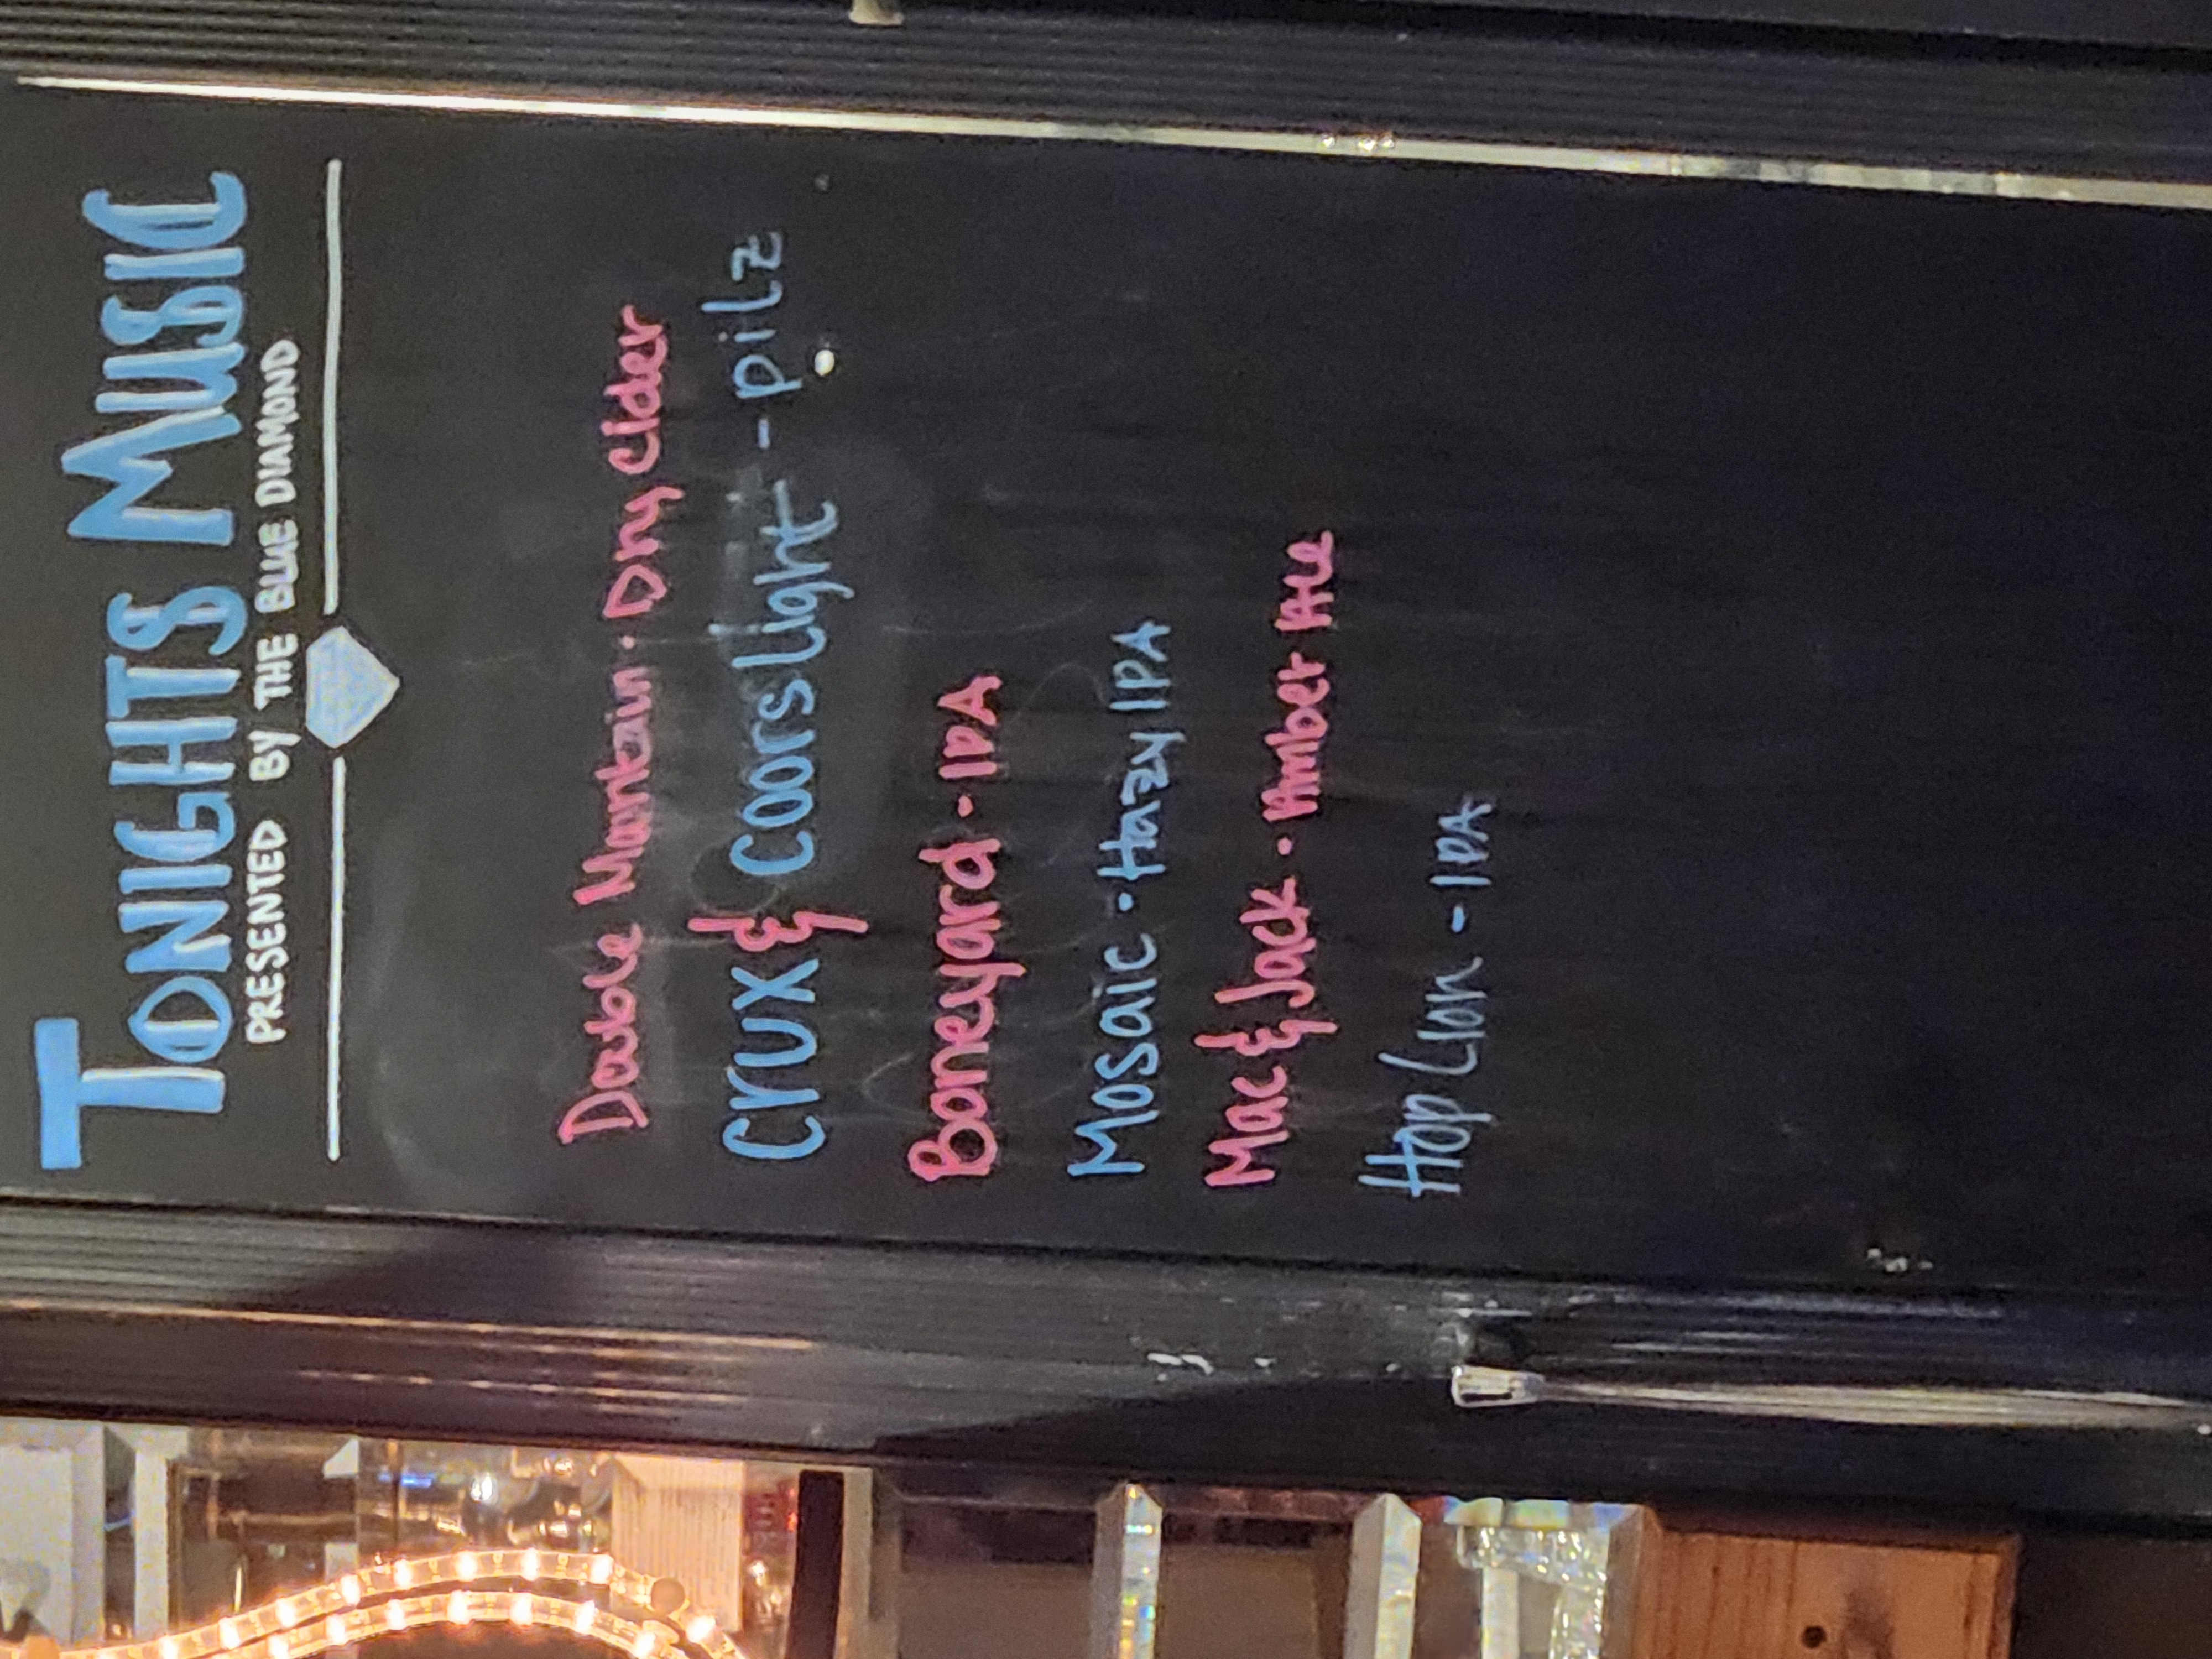 TONIGHTS MUSIC
PRESENTED BY THE BLUE DIAMOND
Double Mountain · Dry Cider
Crux & Coors Light - pilz
Boneyard - IPA
Mosaic · Hazy IPA
Mac & Jack · Amber Ale
Hop Lion - IPA